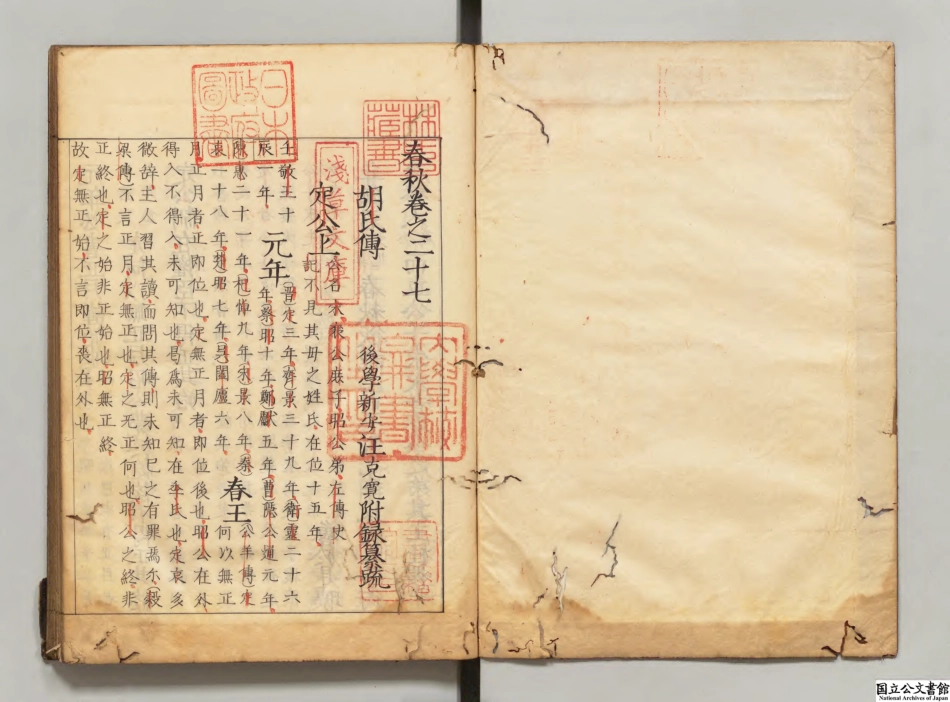 春秋卷之二十七
胡氏傳
後學新安汪克寬附錄纂疏
定公上
公名宋襄公庶子昭公弟左傳史
記不見其母之姓氏在位十五年
壬敬王十
辰一年
元年
晋定三年齊景三十九年衛靈二十六
年蔡昭十年鄭獻五年曹隱公通元年
陳惠二十一年杞悼九年宋景八年秦
哀二十八年楚昭七年吳闔廬六年
春王
公羊傳定
何以無正
月正月者正即位也定無正月者即位後也昭公在外
得入不得入未可知也曷爲未可知在季氏也定哀多
微辞主人習其讀而問其傳則未知己之有罪焉尓穀
梁傳不言正月定無正也定之无正何也昭公之終非
正終也定之始非正始也昭無正終
故定無正始不言即位喪在外也
日本
政府
圖書
林氏
藏書
淺草文庫
国立公文書館
National Archives of Japan